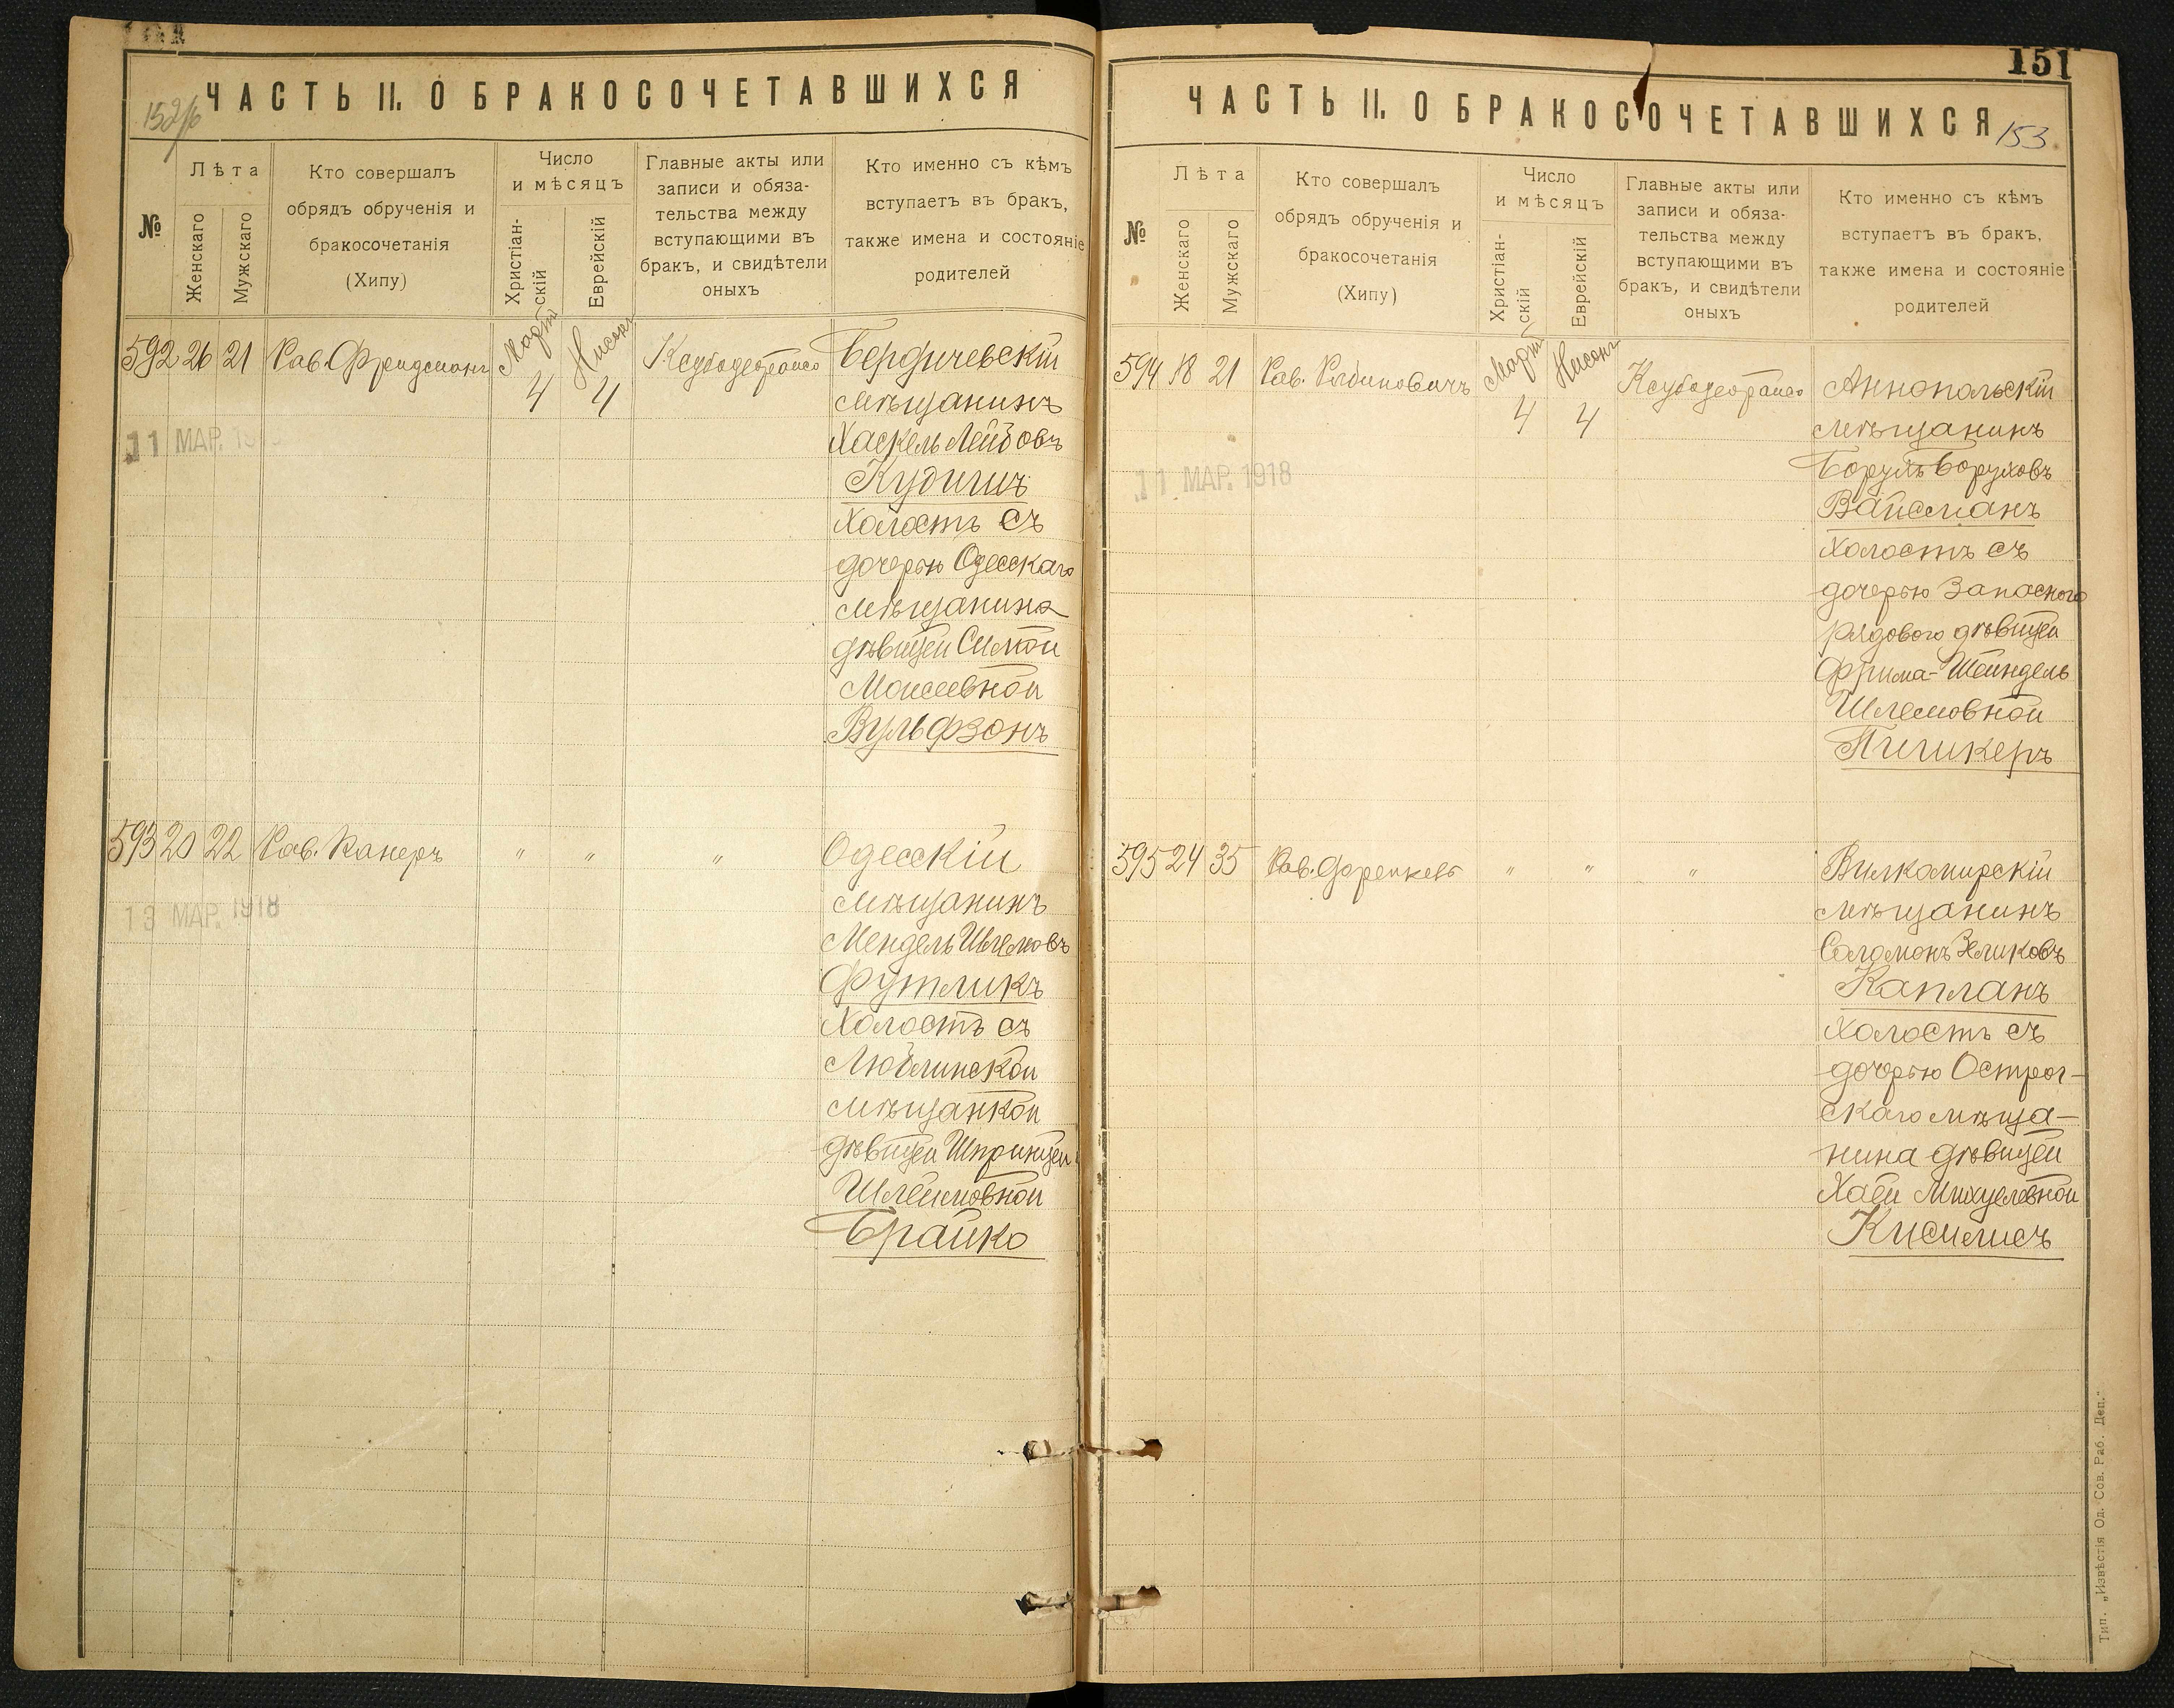 152/6
ЧАСТЬ II. О БРАКОСОЧЕТАВШИХСЯ
№
Лѣта
Женскаго
Мужскаго
Кто совершалъ
обрядъ обрученія и
бракосочетанія
(Хипу)
Число
и мѣсяцъ
Христіан-
скій
Еврейскій
Главные акты или
записи и обяза-
тельства между
вступающими въ
бракъ, и свидѣтели
оныхъ
Кто именно съ кѣмъ
вступаетъ въ бракъ,
также имена и состояніе
родителей
592 26 21 Рав. Фридманъ Мартъ 4 Нисонъ 4
11 МАР. 1918
Бердичевскій
мѣщанинъ
Хаскель Лейбовъ
Кудишъ
холостъ съ
дочерью Одесскаго
мѣщанина
дѣвицей Симой
Моисеевной
Вульфзонъ
593 20 22 Рав. Канеръ " " "
13 МАР. 1918
Одесскій
мѣщанинъ
Мендель Шлемовъ
Футликъ
холостъ съ
Люблинской
мѣщанкой
дѣвицей Шпринцей
Шлеймовной
Брайко
151
ЧАСТЬ II. О БРАКОСОЧЕТАВШИХСЯ
153
№
Лѣта
Женскаго
Мужскаго
Кто совершалъ
обрядъ обрученія и
бракосочетанія
(Хипу)
Число
и мѣсяцъ
Христіан-
скій
Еврейскій
Главные акты или
записи и обяза-
тельства между
вступающими въ
бракъ, и свидѣтели
оныхъ
Кто именно съ кѣмъ
вступаетъ въ бракъ,
также имена и состояніе
родителей
594 18 21 Рав. Рабиновичъ Мартъ 4 Нисонъ 4
11 МАР. 1918
Аннопольскій
мѣщанинъ
Борухъ Боруховъ
Вайсманъ
холостъ съ
дочерью Запасного
рядового дѣвицей
Фрима-Шейндель
Шлемовной
Пичикеръ
595 24 35 Рав. " " "
Вилкомирскій
мѣщанинъ
Соломонъ Зеликовъ
Капланъ
холостъ съ
дочерью Острог-
скаго мѣща-
нина дѣвицей
Хаей Михуелевной
Кисилисъ
Тип. „Извѣстія Од. Сов. Раб. Деп."